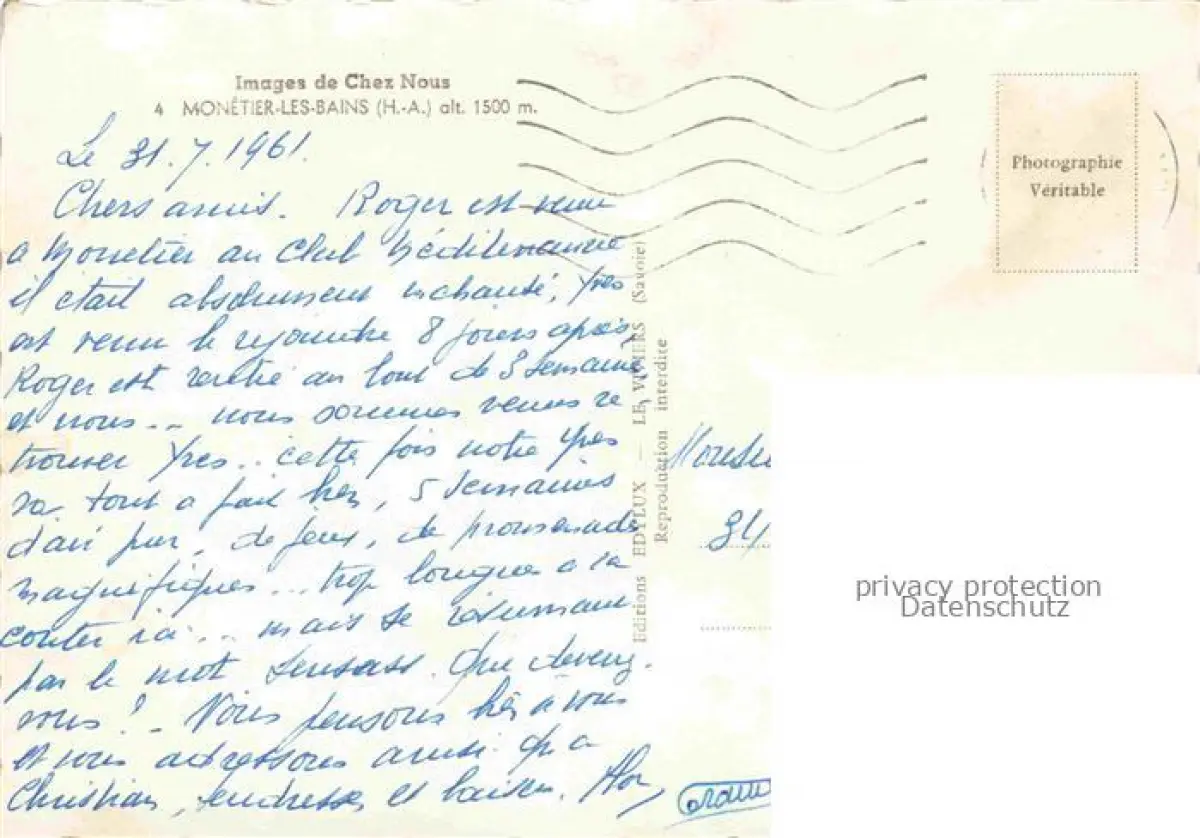 Images de Chez Nous
4 MONÊTIER-LES-BAINS (H.-A.) alt. 1500 m.
Le 31.7.1961.
Chers amis. Roger est venu
a Monetier au Club Méditerranée
il était absolument enchanté, Yves
est venu le rejoindre 8 jours après,
Roger est rentré au bout de 3 semaines
et nous... nous sommes venus re
trouver Yves.. cette fois notre Yves
va tout a fait bien, 5 semaines
d'air pur, de jeux, de promenades
magnifiques... trop longues a ra
conter ici... mais se résumant
par le mot sensass. Que devenez-
vous? - Nous pensons bien à vous
et vous adressons ainsi qu'a
Christian, tendresses et baisers.
Photographie
Véritable
Editions EDYLUX — LE VIVIERS (Savoie)
Reproduction interdite
privacy protection
Datenschutz